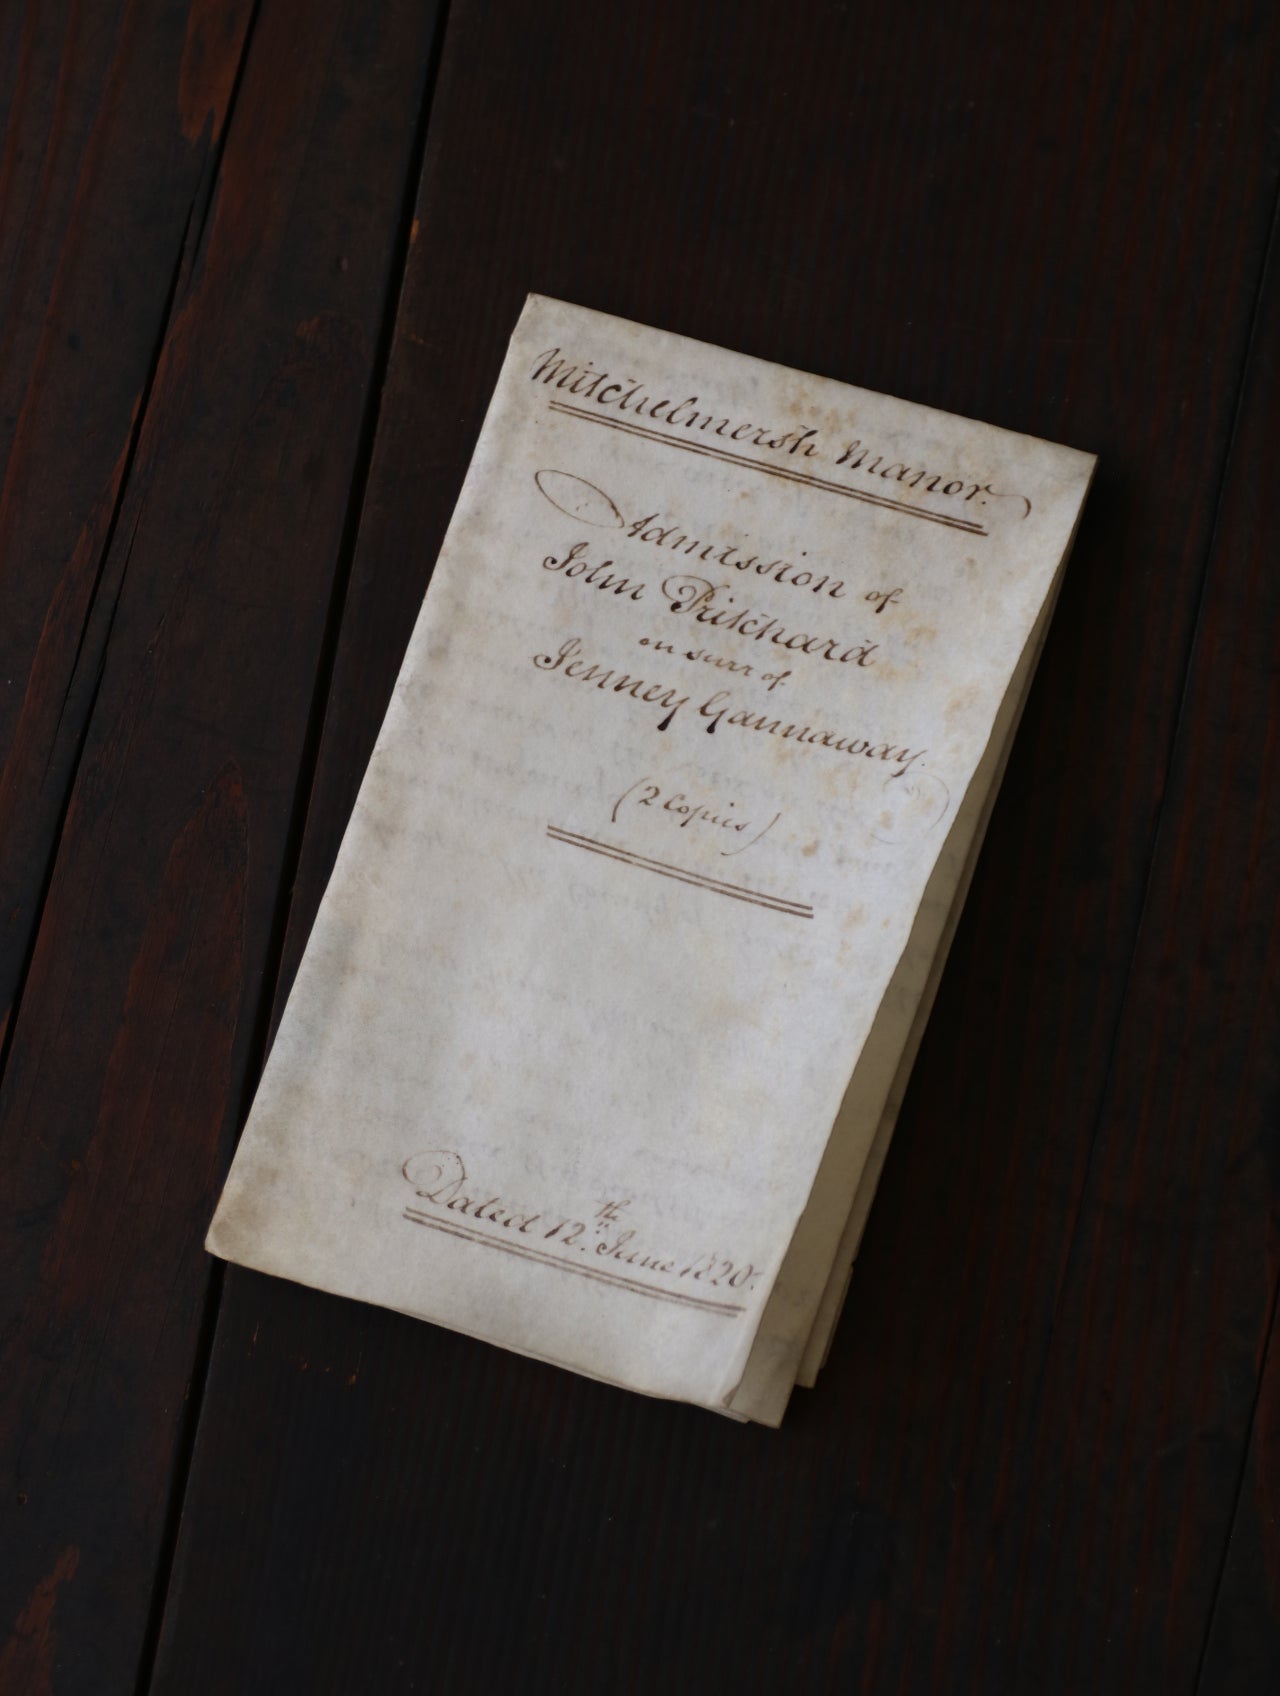 Mitchelmersh Manor.
Admission of
John Pritchard
on surr of
Jenney Gannaway.
(2 Copies)
Dated 12th June 1820.